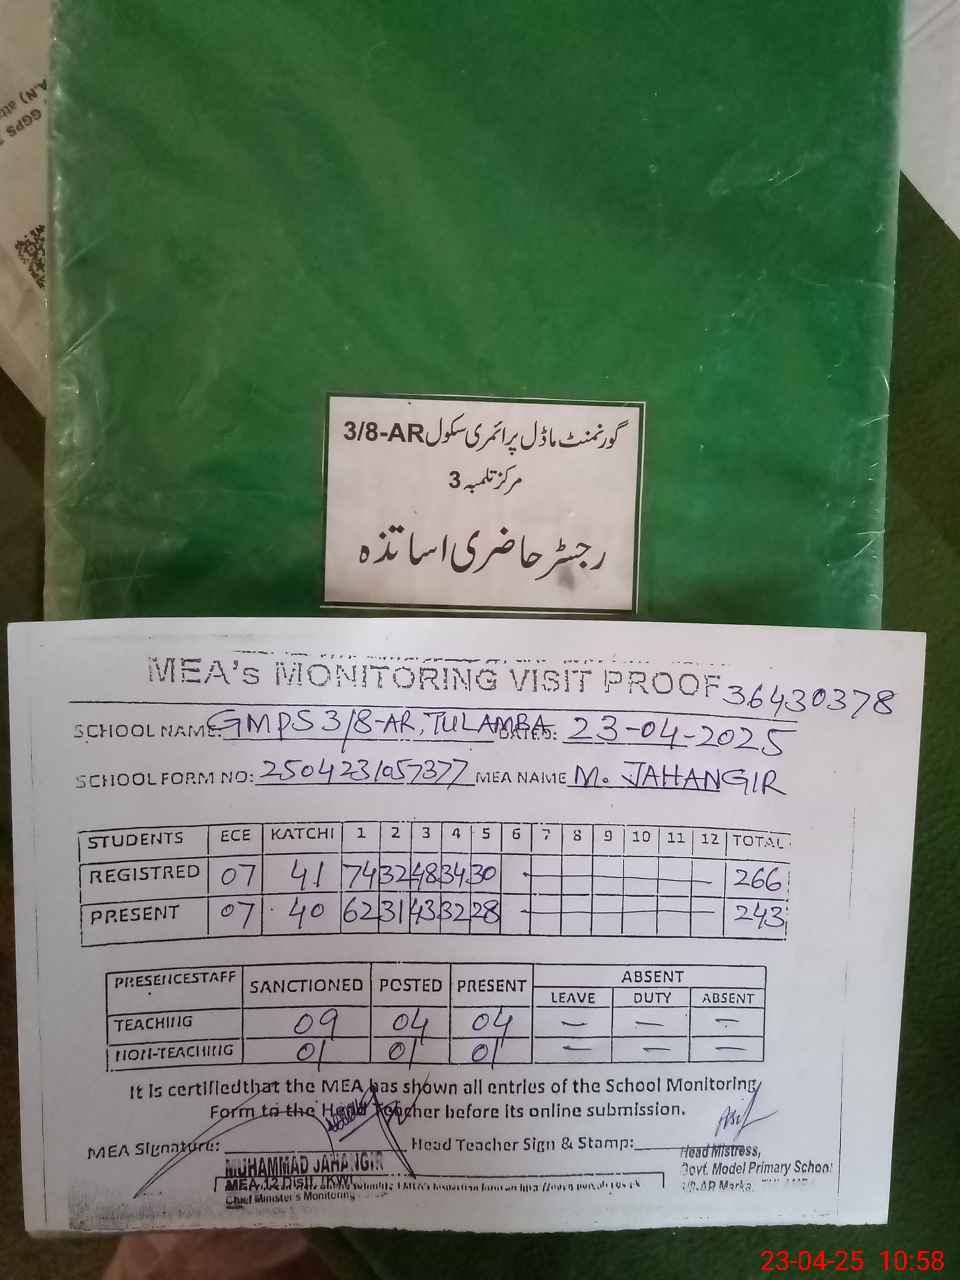 GGPS
گورنمنٹ ماڈل پرائمری سکول 3/8-AR
مرکز تلمبہ 3
رجسٹر حاضری اساتذہ
MEA's MONITORING VISIT PROOF 36430378
SCHOOL NAME: GMPS 3/8-AR, TULAMBA DATED: 23-04-2025
SCHOOL FORM NO: 2504231057377 MEA NAME M. JAHANGIR
STUDENTS ECE KATCHI 1 2 3 4 5 6 7 8 9 10 11 12 TOTAL
REGISTRED 07 41 74 32 48 34 30 266
PRESENT 07 40 62 31 43 32 28 243
PRESENCESTAFF SANCTIONED POSTED PRESENT ABSENT
LEAVE DUTY ABSENT
TEACHING 09 04 04 — — —
NON-TEACHING 01 01 01 — — —
It is certified that the MEA has shown all entries of the School Monitoring
Form to the Head Teacher before its online submission.
MEA Signature: Head Teacher Sign & Stamp:
MUHAMMAD JAHANGIR
MEA-12 Distt. (KW)
Chief Minister's Monitoring
Head Mistress,
Govt. Model Primary School
23-04-25 10:58